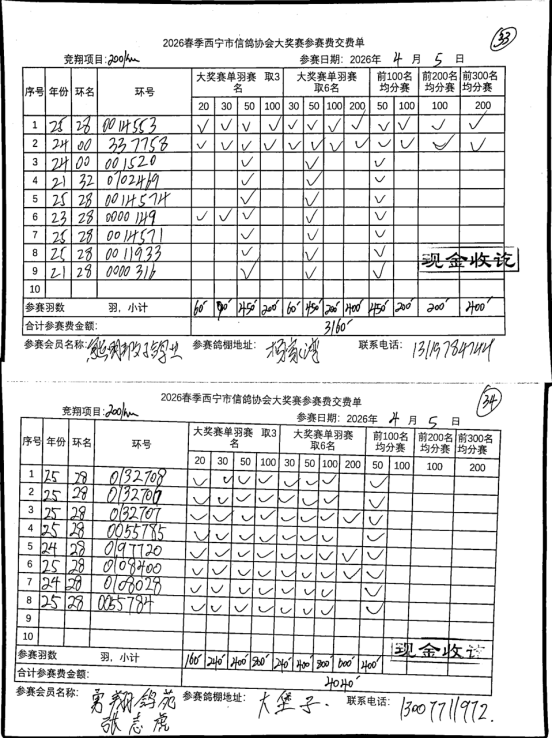 2026春季西宁市信鸽协会大奖赛参赛费交费单
33
竞翔项目:200/km 参赛日期: 2026年 4 月 5 日
序号 年份 环名 环号 大奖赛单羽赛 取3名 大奖赛单羽赛 取6名 前100名均分赛 前200名均分赛 前300名均分赛
20 30 50 100 30 50 100 200 50 100 100 200
1 25 28 0014553 ✓ ✓ ✓ ✓ ✓ ✓ ✓ ✓ ✓ ✓ ✓ ✓
2 24 00 337758 ✓ ✓ ✓ ✓ ✓ ✓ ✓ ✓ ✓ ✓ ✓ ✓
3 24 00 001520 ✓ ✓ ✓
4 21 32 0702469 ✓ ✓ ✓
5 25 28 0014574 ✓ ✓ ✓
6 23 28 0000149 ✓ ✓ ✓ ✓ ✓
7 25 28 0014571 ✓ ✓ ✓
8 25 28 0011933 ✓ ✓ ✓
9 21 28 0000316 ✓ ✓ ✓
现金收讫
10
参赛羽数 羽, 小计 60 90 450 200 60 450 200 400 450 200 200 400
合计参赛费金额: 3160
参赛会员名称: 参赛鸽棚地址: 联系电话:
2026春季西宁市信鸽协会大奖赛参赛费交费单
34
竞翔项目:200/km 参赛日期: 2026年 4 月 5 日
序号 年份 环名 环号 大奖赛单羽赛 取3名 大奖赛单羽赛 取6名 前100名均分赛 前200名均分赛 前300名均分赛
20 30 50 100 30 50 100 200 50 100 100 200
1 25 28 0132708 ✓ ✓ ✓ ✓ ✓ ✓ ✓ ✓
2 25 28 ✓ ✓ ✓ ✓ ✓ ✓ ✓ ✓
3 25 28 0132707 ✓ ✓ ✓ ✓ ✓ ✓ ✓ ✓ ✓
4 25 28 0055785 ✓ ✓ ✓ ✓ ✓ ✓ ✓ ✓
5 24 28 0197720 ✓ ✓ ✓ ✓ ✓ ✓ ✓ ✓ ✓
6 25 28 0108400 ✓ ✓ ✓ ✓ ✓ ✓ ✓ ✓ ✓
7 24 28 0108028 ✓ ✓ ✓ ✓ ✓ ✓ ✓ ✓
8 25 28 0055784 ✓ ✓ ✓ ✓ ✓ ✓ ✓ ✓
9
10
现金收讫
参赛羽数 羽, 小计 160 240 400 800 240 400 800 600 400
合计参赛费金额: 4040
参赛会员名称: 勇翔鸽苑 参赛鸽棚地址: 大堡子. 联系电话: 13007711972.
张志虎